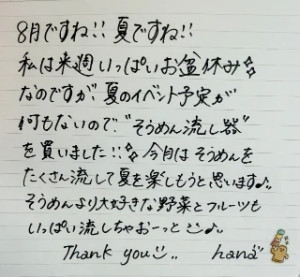 8月ですね!! 夏ですね!!
私は来週いっぱいお盆休み✨
なのですが、夏のイベント予定が
何もないので、"そうめん流し器"
を買いました!!✨ 今月は そうめんを
たくさん流して夏を楽しもうと思います♪。
そうめんより大好きな野菜とフルーツも
いっぱい流しちゃおーっと☺♪。
Thank you☺.. hana